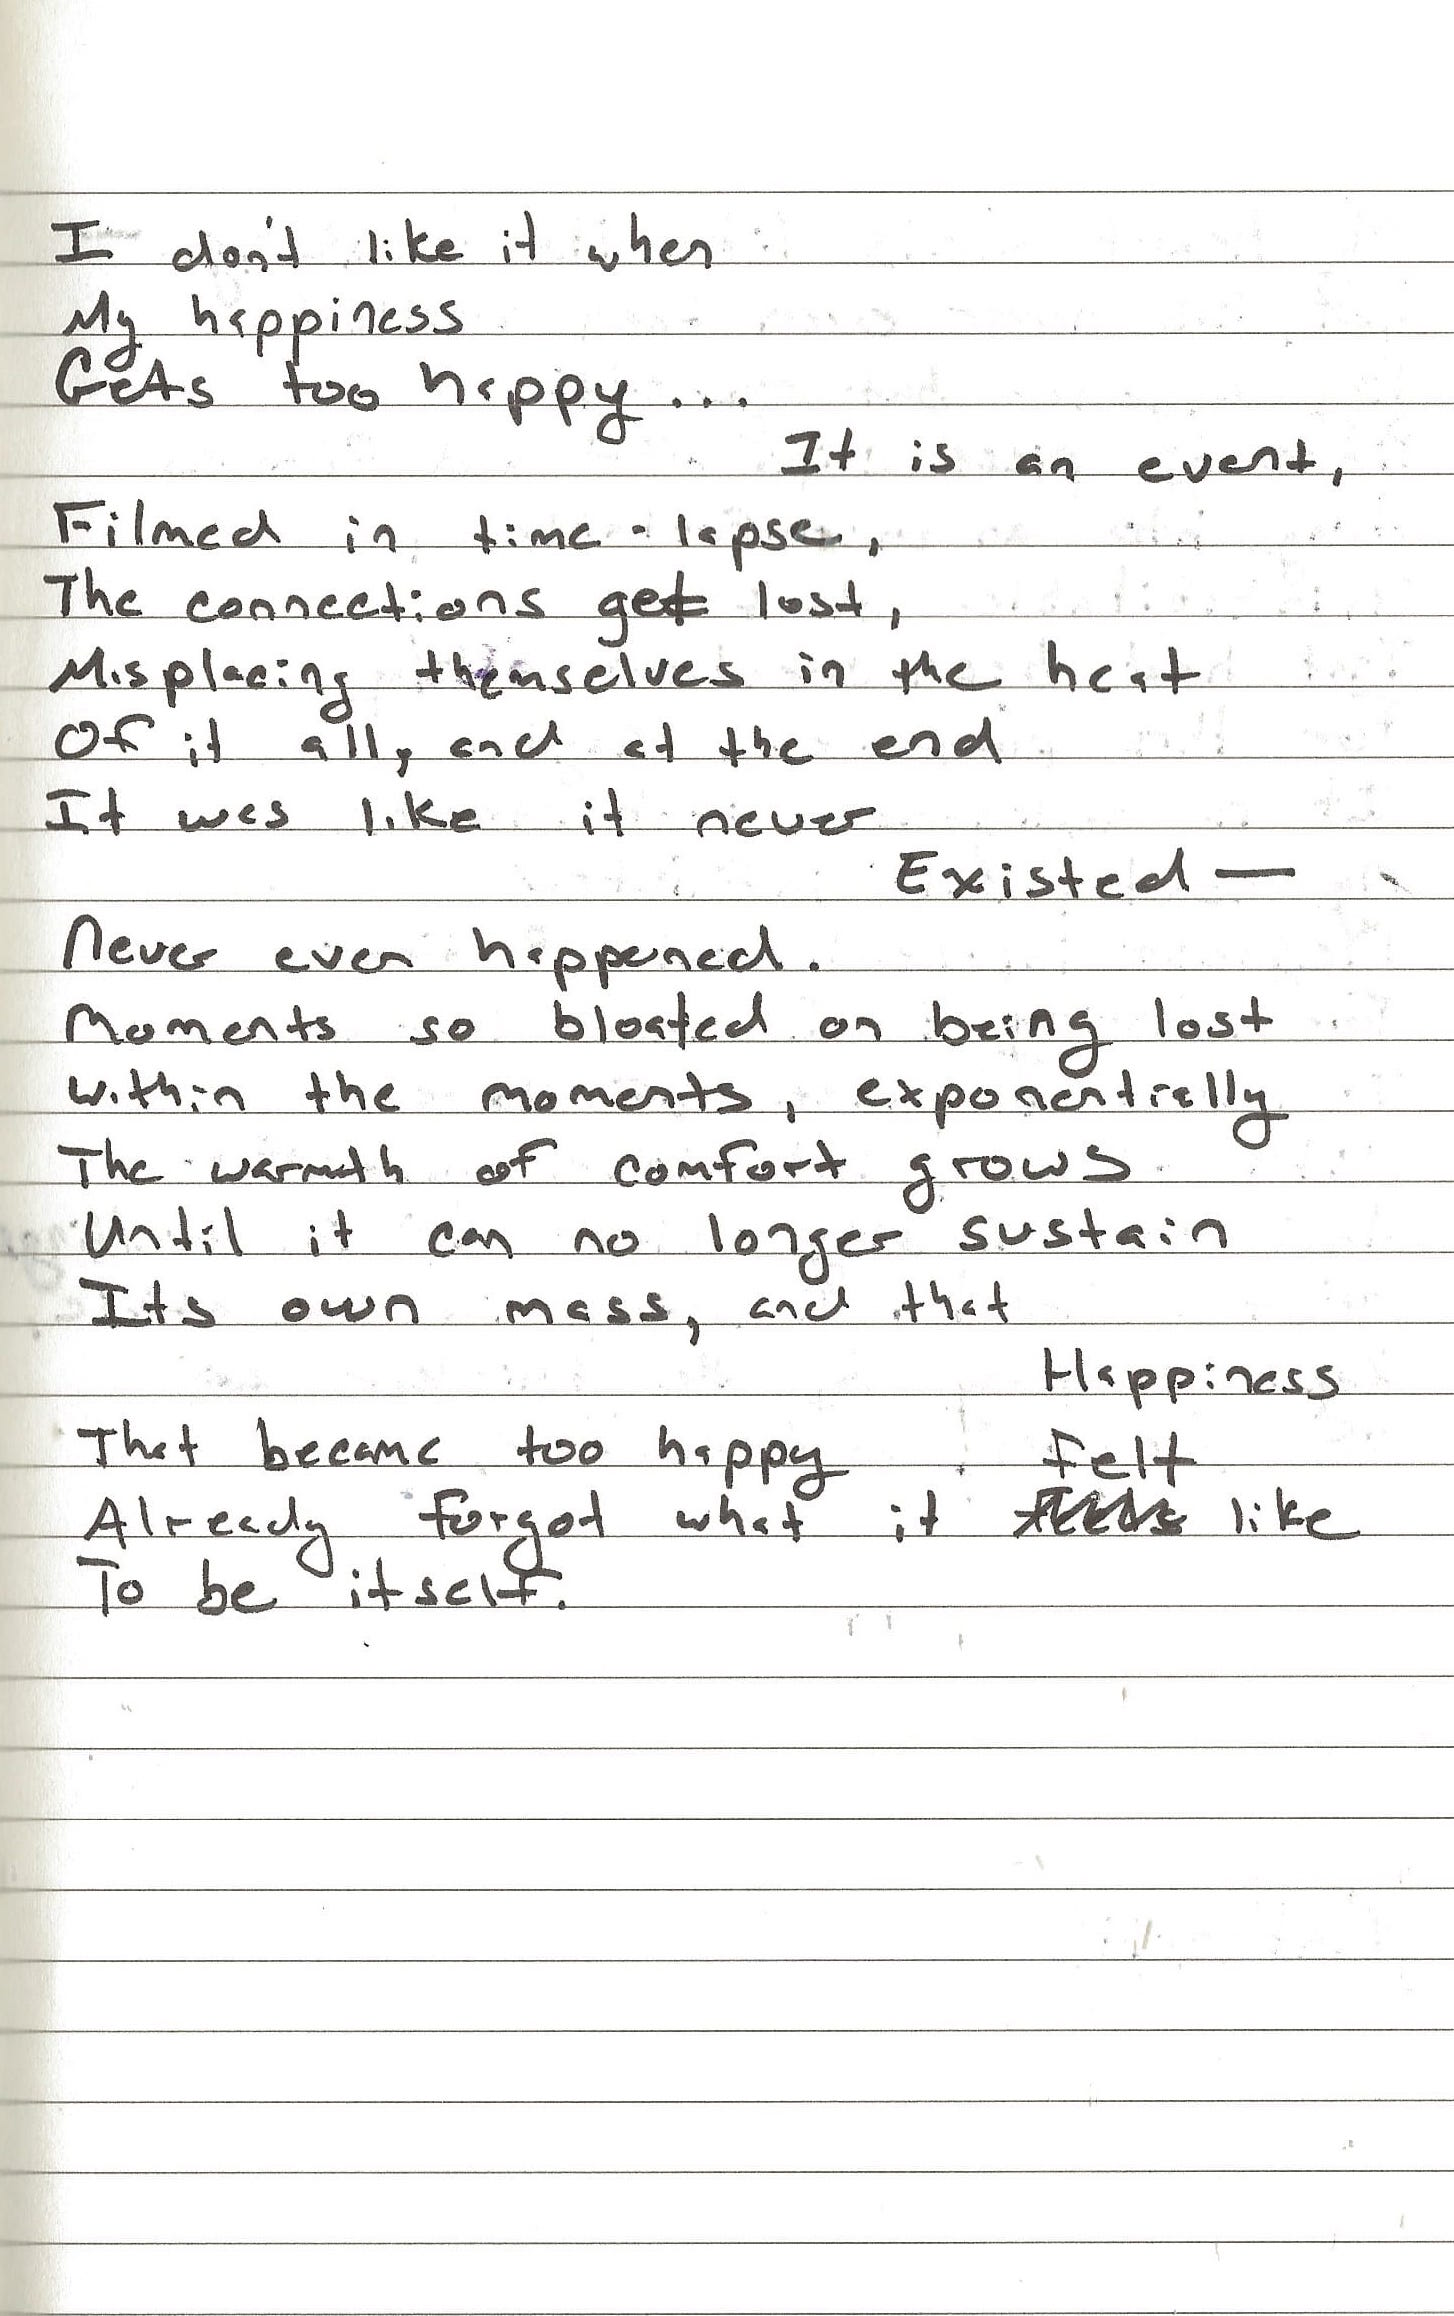 I don't like it when
My happiness
Gets too happy...
It is an event,
Filmed in time-lapse,
The connections get lost,
Misplacing themselves in the heat
Of it all, and at the end
It was like it never
Existed—
Never even happened.
Moments so bloated on being lost
within the moments, exponentially
The warmth of comfort grows
Until it can no longer sustain
Its own mass, and that
Happiness
That became too happy
Already forgot what it felt like
To be itself.